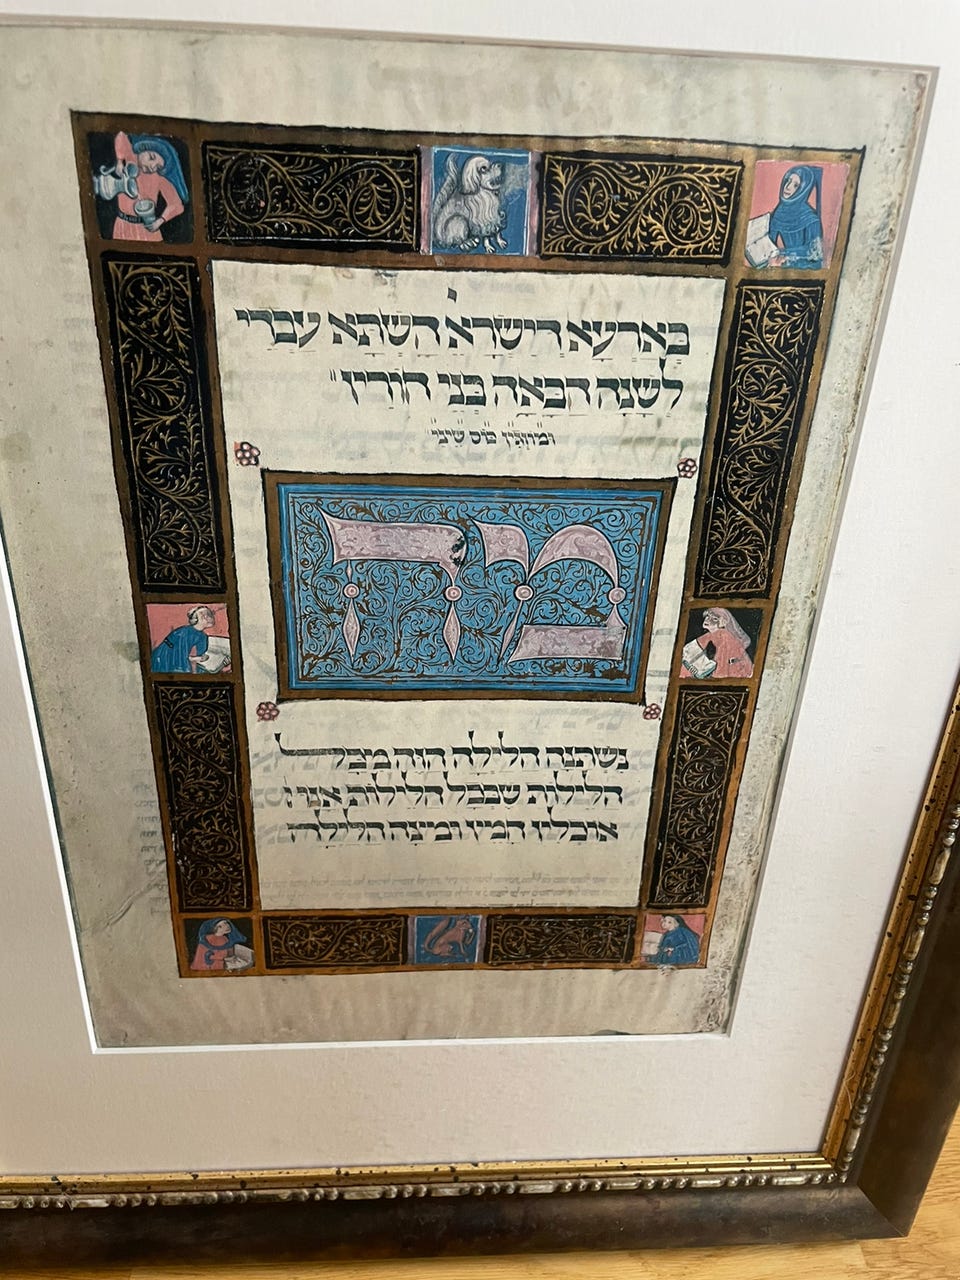 בארעא דישרא השתא עבדי
לשנה הבאה בני חורין
ומוזגין כוס שיני
מה
נשתנה הלילה הזה מכל
הלילות שבכל הלילות אנו
אוכלין חמץ ומצה הלילה